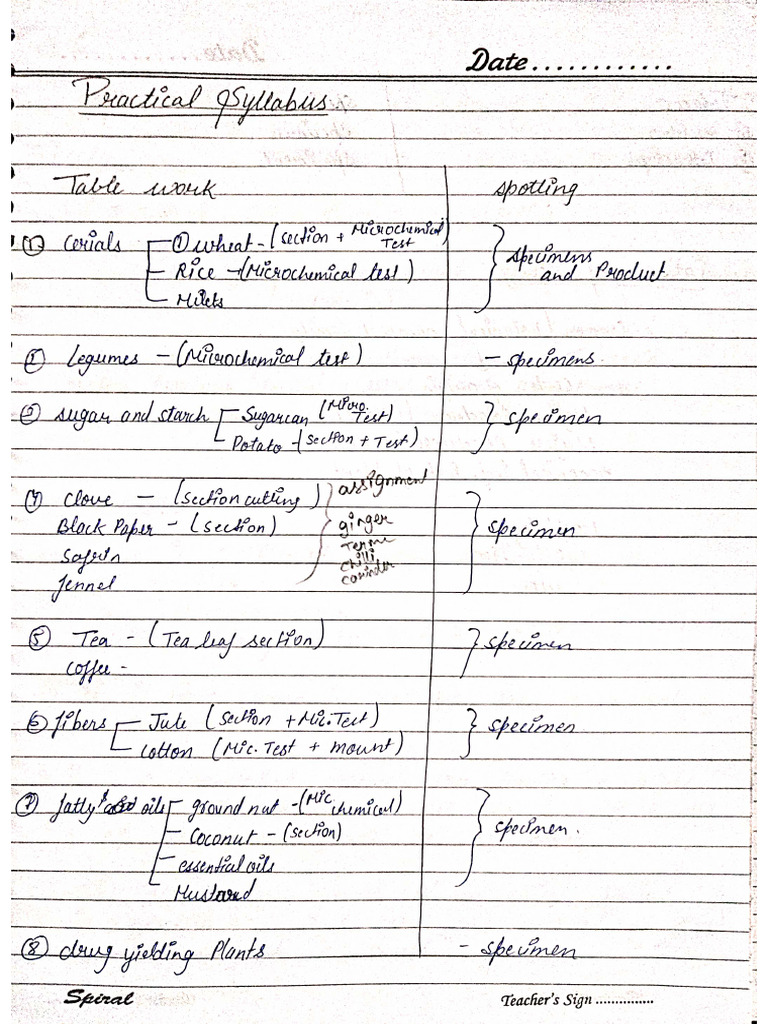 Date............
Practical Syllabus
Table work spotting
① Cerials ① wheat - (section + Microchemical Test)
Rice - (Microchemical test) } specimens and Product
Millets
② legumes - (Microchemical test) - specimens.
③ sugar and starch Sugarcan (Micro. Test) } specimen
Potato - (section + Test)
④ clove - (section cutting) } assignment
Black Paper - (section) ginger } specimen
Safrin chilli
fennel corinder
⑤ Tea - (Tea leaf section) } specimen
coffee -
⑥ fibers Jute (section + Mic. Test) } specimen
cotton (Mic. Test + mount)
⑦ fatly oils ground nut - (Mic chemical)
Coconut - (section) } specimen.
essential oils
Mustard
⑧ drug yielding Plants - specimen
Spiral Teacher's Sign ...............